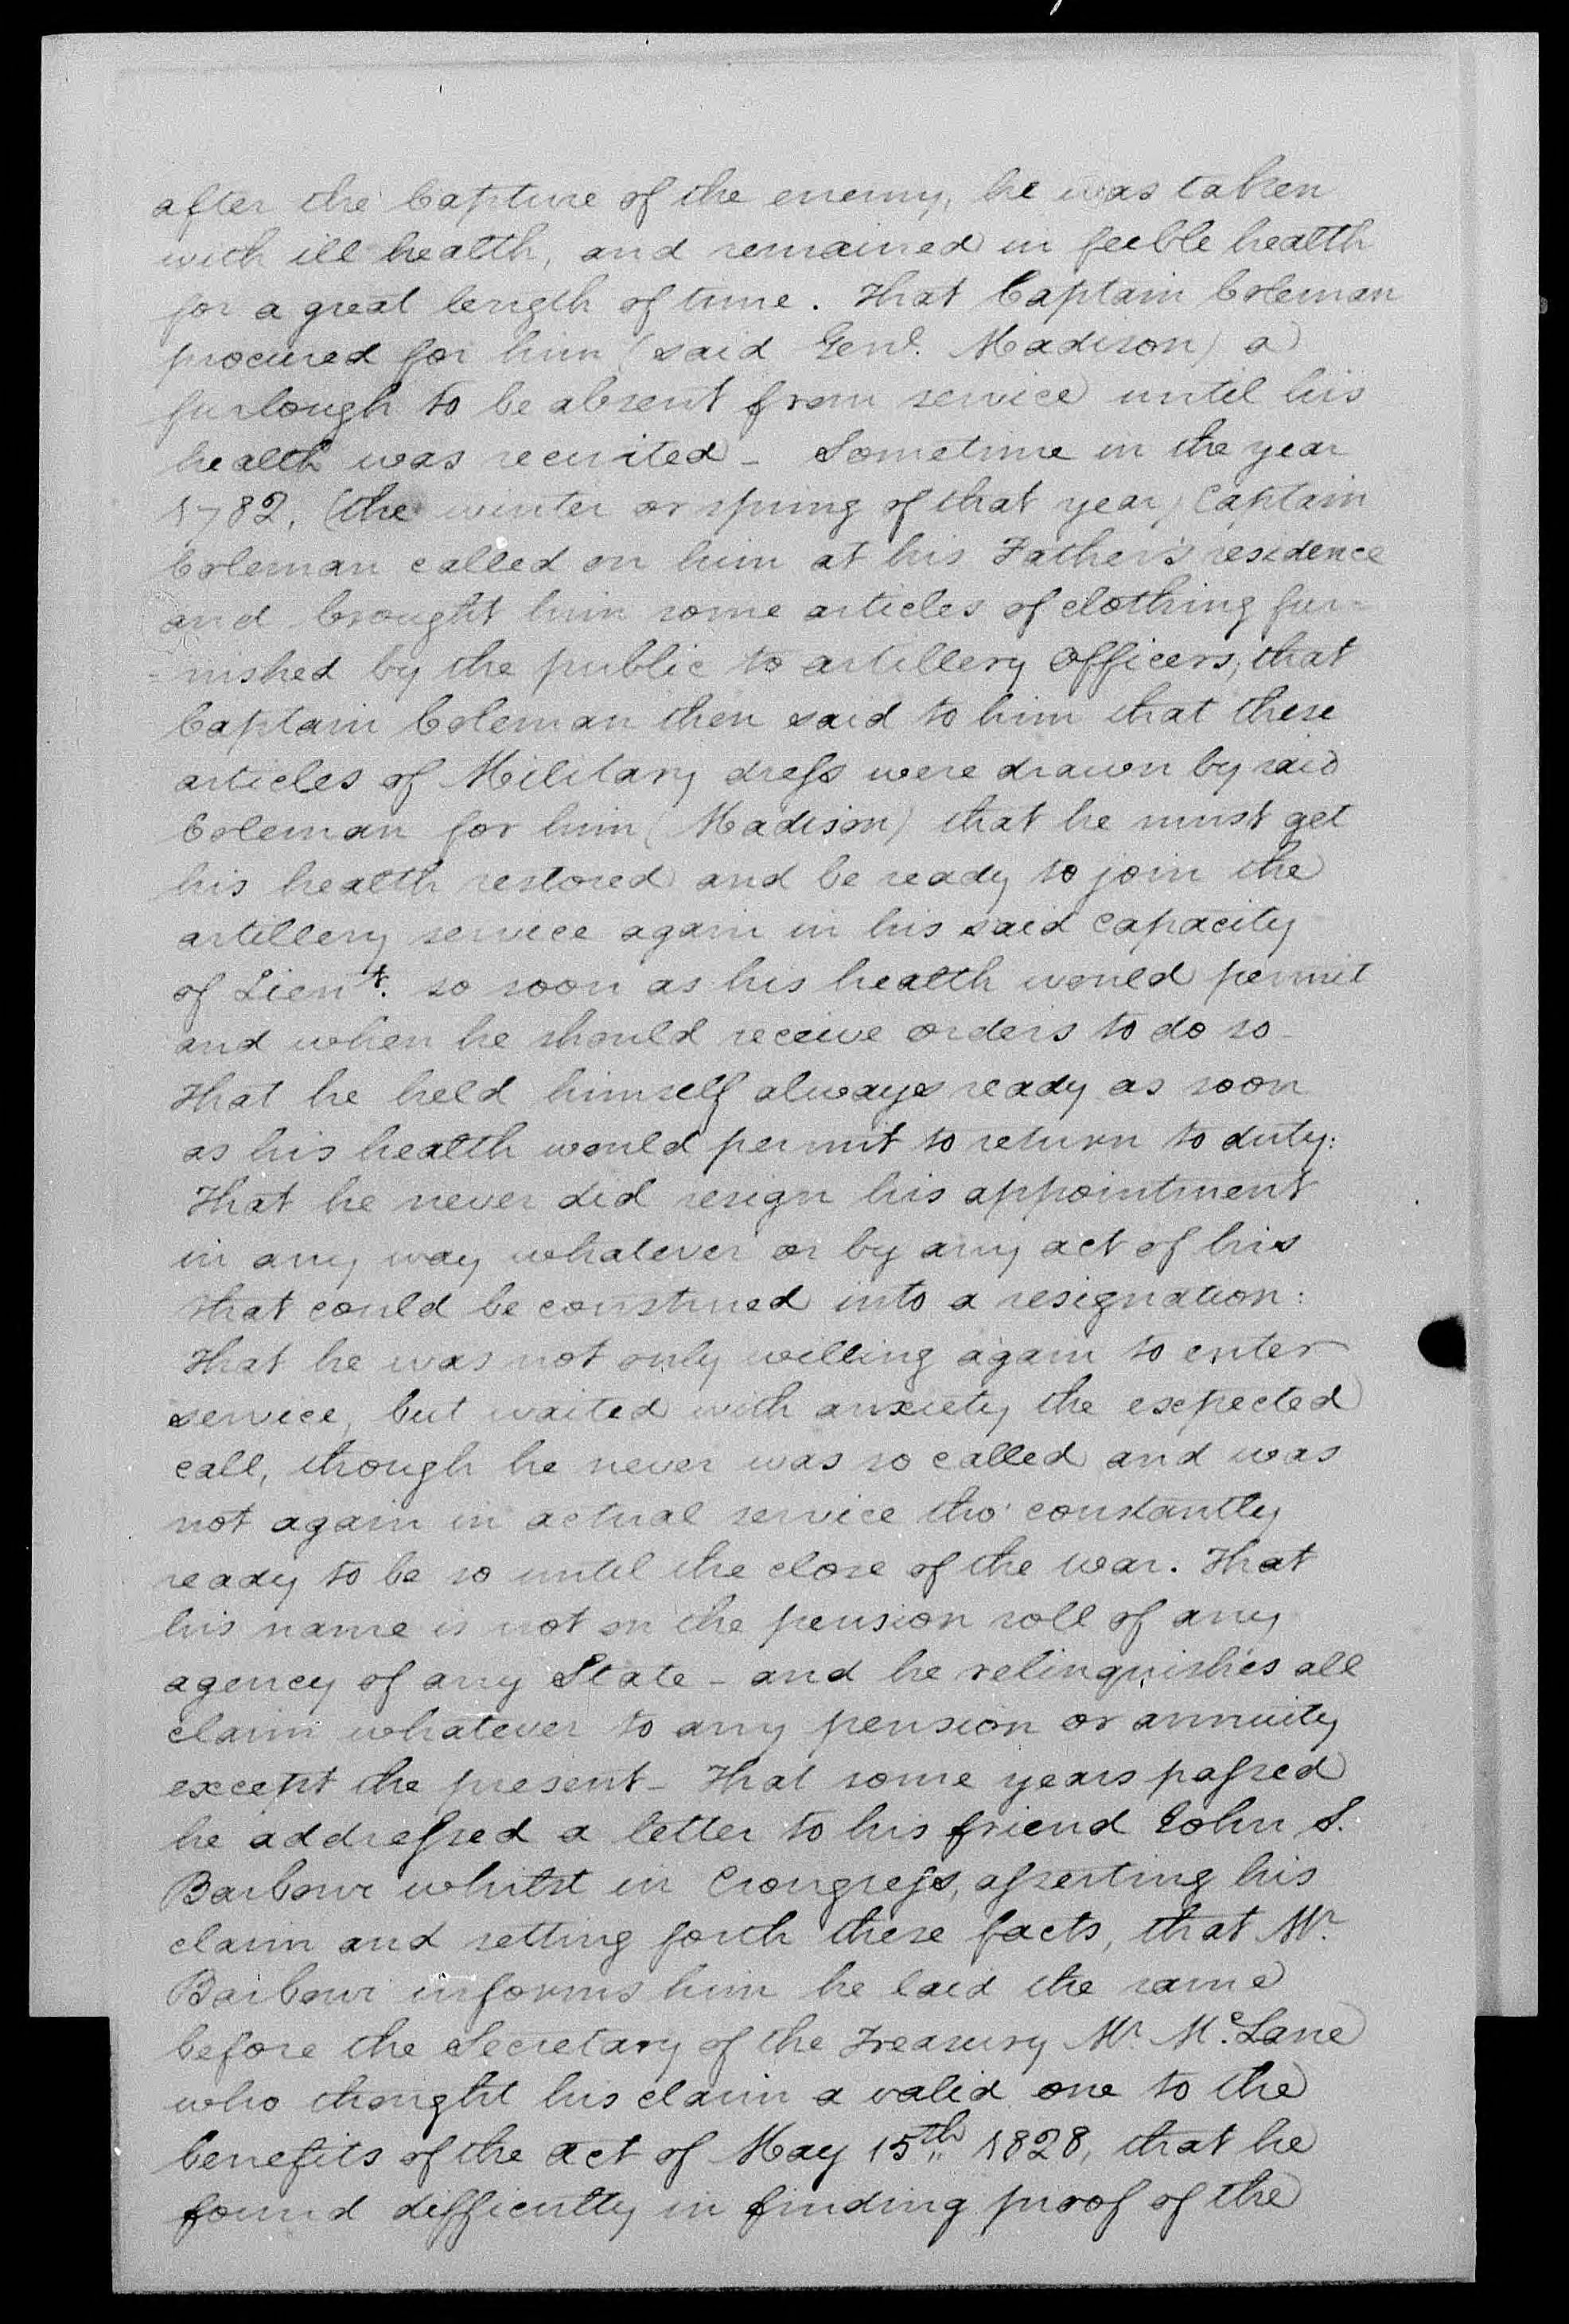 after the Capture of the enemy, he was taken
with ill health, and remained in feeble health
for a great length of time. That Captain Coleman
procured for him (said Genl. Madison) a
furlough to be absent from service until his
health was recruited - Sometime in the year
1782, (the winter or spring of that year) Captain
Coleman called on him at his Father's residence
and brought him some articles of clothing fur=
=nished by the public to artillery Officers; that
Captain Coleman then said to him that these
articles of Military dress were drawn by said
Coleman for him (Madison) that he must get
his health restored and be ready to join the
artillery service again in his said capacity
of Lieut. so soon as his health would permit
and when he should receive orders to do so -
That he held himself always ready as soon
as his health would permit to return to duty:
That he never did resign his appointment
in any way whatever or by any act of his
that could be construed into a resignation:
That he was not only willing again to enter
service, but waited with anxiety the expected
call, though he never was so called and was
not again in actual service tho' constantly
ready to be so until the close of the war. That
his name is not on the pension roll of any
agency of any State - and he relinquishes all
claim whatever to any pension or annuity
except the present - That some years passed
he addressed a letter to his friend John S.
Barbour whilst in Congress, asserting his
claim and setting forth these facts, that Mr.
Barbour informs him he laid the same
before the Secretary of the Treasury Mr. McLane
who thought his claim a valid one to the
benefits of the act of May 15th 1828, that he
found difficulty in finding proof of the